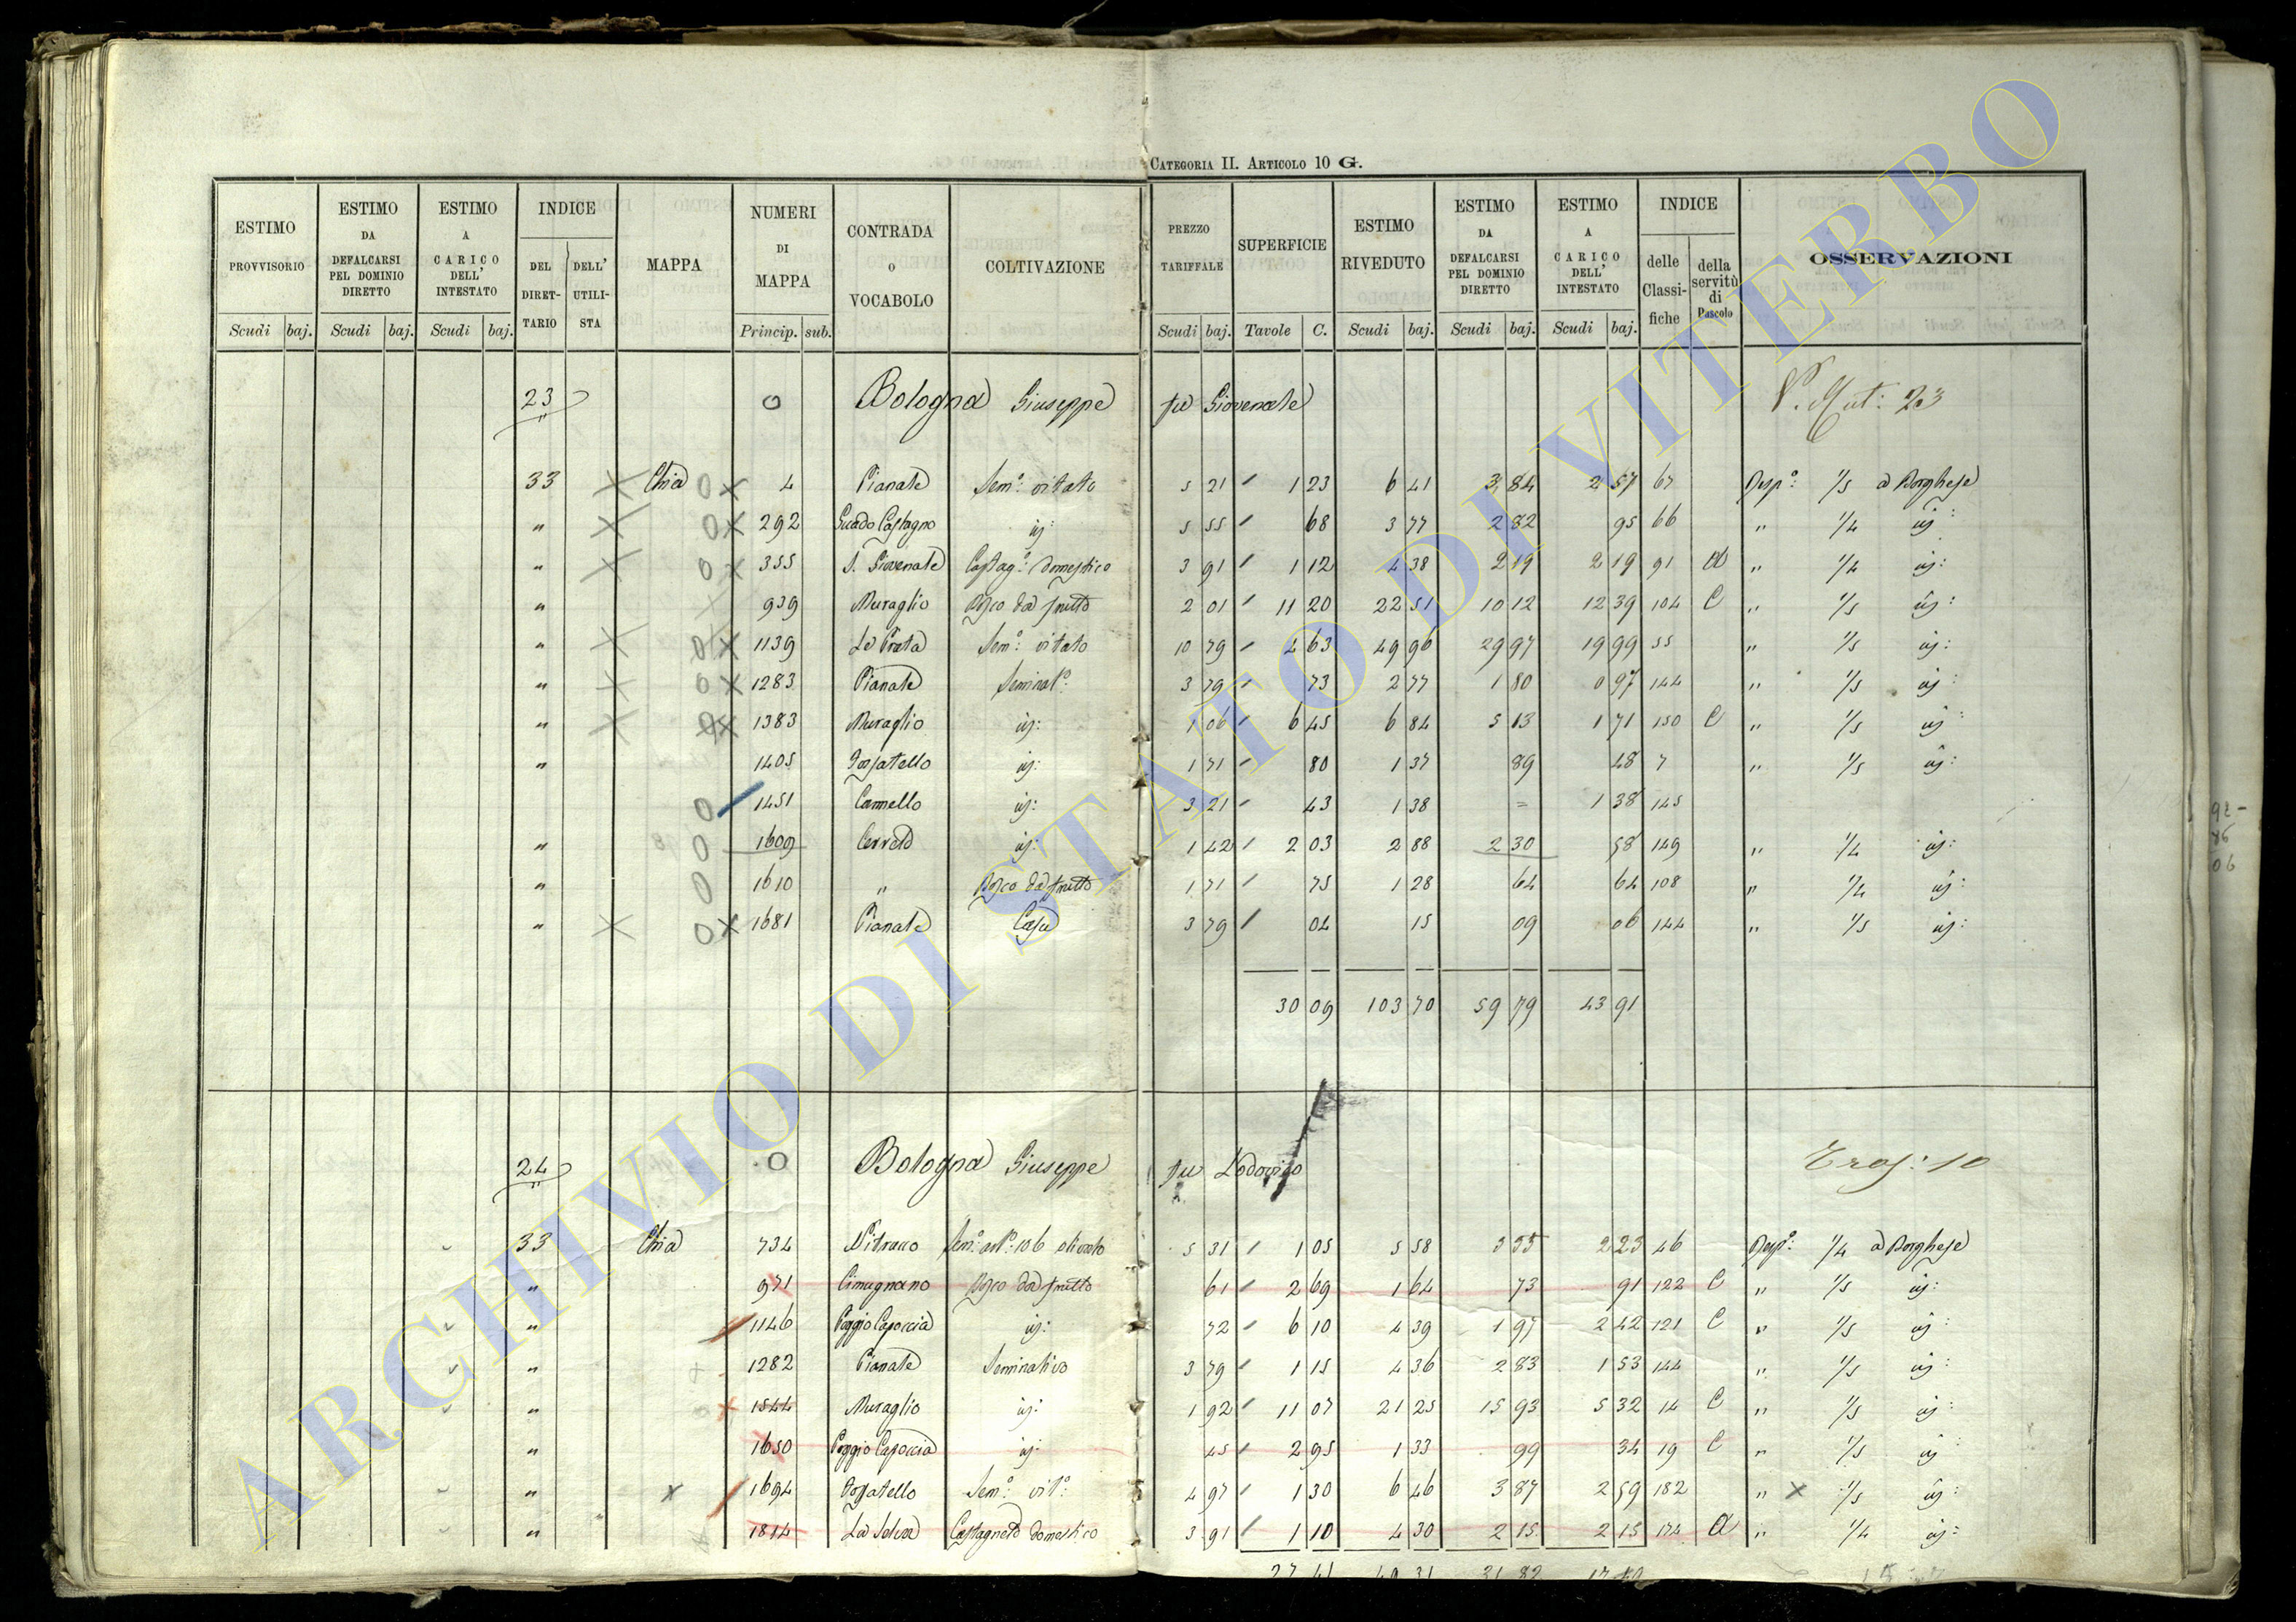 CATEGORIA II. ARTICOLO 10 G.
ESTIMO PROVVISORIO Scudi baj. ESTIMO DA DEFALCARSI PEL DOMINIO DIRETTO Scudi baj. ESTIMO A CARICO DELL' INTESTATO Scudi baj. INDICE DEL DIRETTARIO DELL' UTILISTA MAPPA NUMERI DI MAPPA Princip. sub. CONTRADA O VOCABOLO COLTIVAZIONE PREZZO TARIFFALE Scudi baj. SUPERFICIE Tavole C. ESTIMO RIVEDUTO Scudi baj. ESTIMO DA DEFALCARSI PEL DOMINIO DIRETTO Scudi baj. ESTIMO A CARICO DELL' INTESTATO Scudi baj. INDICE delle Classifiche della servitù di Pascolo OSSERVAZIONI
23 O Bologna Giuseppe fu Giovenale V. Mut: 23
33 Chia O X 4 Pianale Sem.o vitato 5 21 1 23 6 41 3 84 2 57 67 1/5 a Borghese
" O X 292 Guado Castagno id: 5 55 68 3 77 2 82 95 66 " 1/4 id:
" O X 355 S. Giovenale Castag.o domestico 3 91 1 12 4 38 2 19 2 19 91 a " 1/4 id:
" 939 Muraglio Bosco da frutto 2 01 11 20 22 51 10 12 12 39 104 C " 1/5 id:
" O X 1139 La Prata Sem.o vitato 10 79 4 63 49 96 29 97 19 99 55 " 1/5 id:
" O X 1283 Pianale Seminat.o 3 79 73 2 77 1 80 0 97 144 " 1/5 id:
" X 1383 Muraglio id: 1 06 6 45 6 84 5 13 1 71 150 C " 1/5 id:
" 1405 Fossatello id: 1 71 80 1 37 89 48 7 " 1/5 id:
O 1451 Cannello id: 3 21 43 1 38 = 1 38 145
" O 1609 Cerreto id: 1 42 2 03 2 88 2 30 58 149 " 1/4 id:
" O 1610 " Bosco da frutto 1 71 75 1 28 64 64 108 " 1/4 id:
" O X 1681 Pianale Casa 3 79 04 15 09 06 144 " 1/5 id:
30 09 103 70 59 79 43 91
24 O Bologna Giuseppe fu Lodovico Tras: 10
33 Chia 734 Pitracco 5 31 1 05 5 58 3 35 2 23 46 1/4 a Borghese
" 971 Cimugnano Bosco da frutto 61 2 69 1 64 73 91 122 C " 1/5 id:
" 1146 Poggio Capoccia id: 72 6 10 4 39 1 97 2 42 121 C " 1/5 id:
" 1282 Pianale Seminativo 3 79 1 15 4 36 2 83 1 53 144 " 1/5 id:
" X 1544 Muraglio id: 1 92 11 07 21 25 15 93 5 32 14 C " 1/5 id:
" 1650 Poggio Capoccia id: 45 2 95 1 33 99 34 19 C " 1/5 id:
" X 1694 Fossatello Sem.o vit.o 4 97 1 30 6 46 3 87 2 59 182 " X 1/5 id:
" 1814 La Selva Castagneto domestico 3 91 1 10 4 30 2 15 2 15 174 a " 1/4 id:
27 41 49 31 31 82
ARCHIVIO DI STATO DI VITERBO